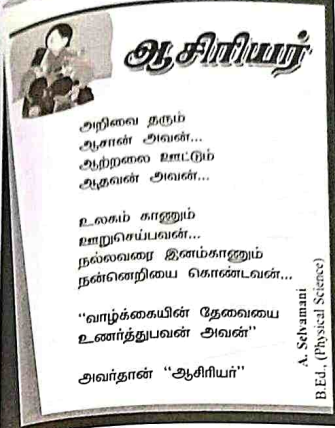 ஆசிரியர்
அறிவை தரும்
ஆசான் அவன்...
ஆற்றலை ஊட்டும்
ஆதவன் அவன்...
உலகம் காணும்
ஊறுசெய்பவன்...
நல்லவரை இனம்காணும்
நன்னெறியை கொண்டவன்...
“வாழ்க்கையின் தேவையை
உணர்த்துபவன் அவன்”
அவர்தான் “ஆசிரியர்”
A. Selvamani
B.Ed., (Physical Science)